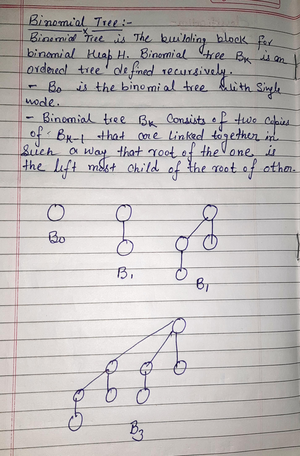 Binomial Tree:-
Binomial Tree is The building block for
binomial Heap H. Binomial tree Bk is an
ordered tree defined recursively.
- B0 is the binomial tree with Single
node.
- Binomial tree Bk Consists of two copies
of Bk-1 that are linked together in
Such a way that root of the one is
the left most child of the root of other.
B0
B1
B1
B3